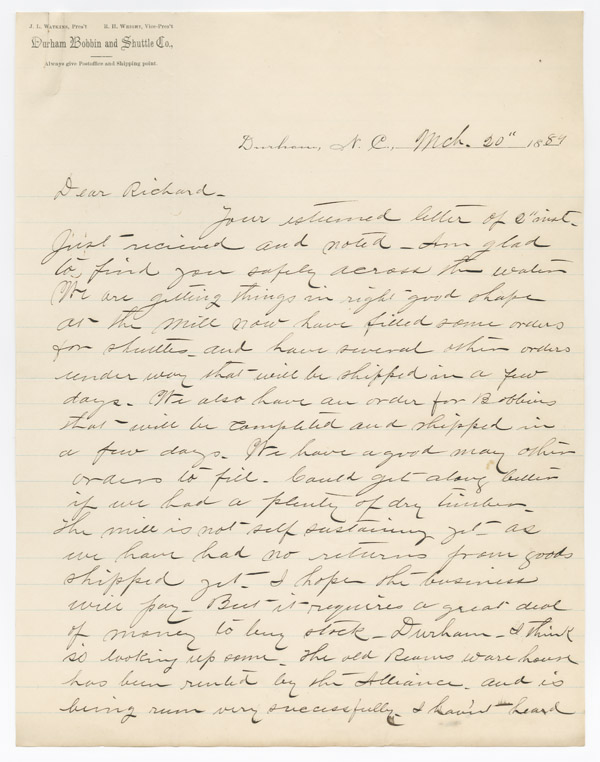 J. L. Watkins, Pres't   R. H. Wright, Vice-Pres't
Durham Bobbin and Shuttle Co.,
Always give Postoffice and Shipping point.
Durham, N. C., Mch. 20" 1889
Dear Richard-
Your esteemed letter of 2" inst-
Just recieved and noted - Am glad
to find you safely across the water
We are getting things in right good shape
at the mill now have filled some orders
for shuttles and have several other orders
under way that will be shipped in a few
days. We also have an order for Bobbins
that will be completed and shipped in
a few days. We have a good many other
orders to fill. Could get along better
if we had a plenty of dry timber-
The mill is not self sustaining yet - as
we have had no returns from goods
shipped yet - I hope the business
will pay - But it requires a great deal
of money to buy stock - Durham - I think
is looking up some. The old Reams ware house
has been rented by the Alliance and is
being run very successfully. I hav'nt heard